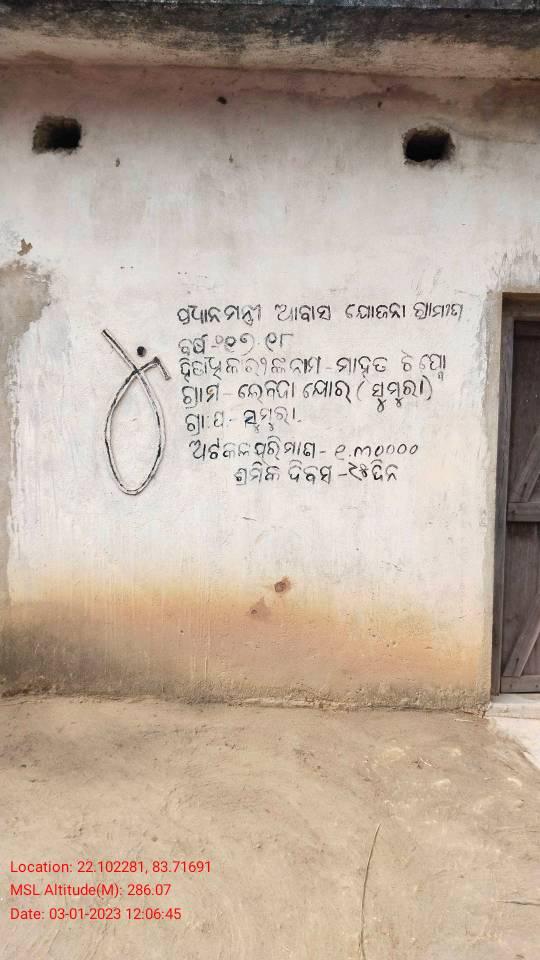 ପ୍ରଧାନମନ୍ତ୍ରୀ ଆବାସ ଯୋଜନା ଗ୍ରାମୀଣ
ବର୍ଷ -୨୦୧୭ ୧୮
ହିତାଧିକାରୀଙ୍କ ନାମ - ମାହୃତ ଟପ୍ପୋ
ଗ୍ରାମ - (ସୁମୁରା)
ଗ୍ରା.ପ - ସୁମୁରା.
ଅଟକଳ ପରିମାଣ - ୧.୩୦୦୦୦
ଶ୍ରମିକ ଦିବସ - ୯୫ ଦିନ
Location: 22.102281, 83.71691
MSL Altitude(M): 286.07
Date: 03-01-2023 12:06:45